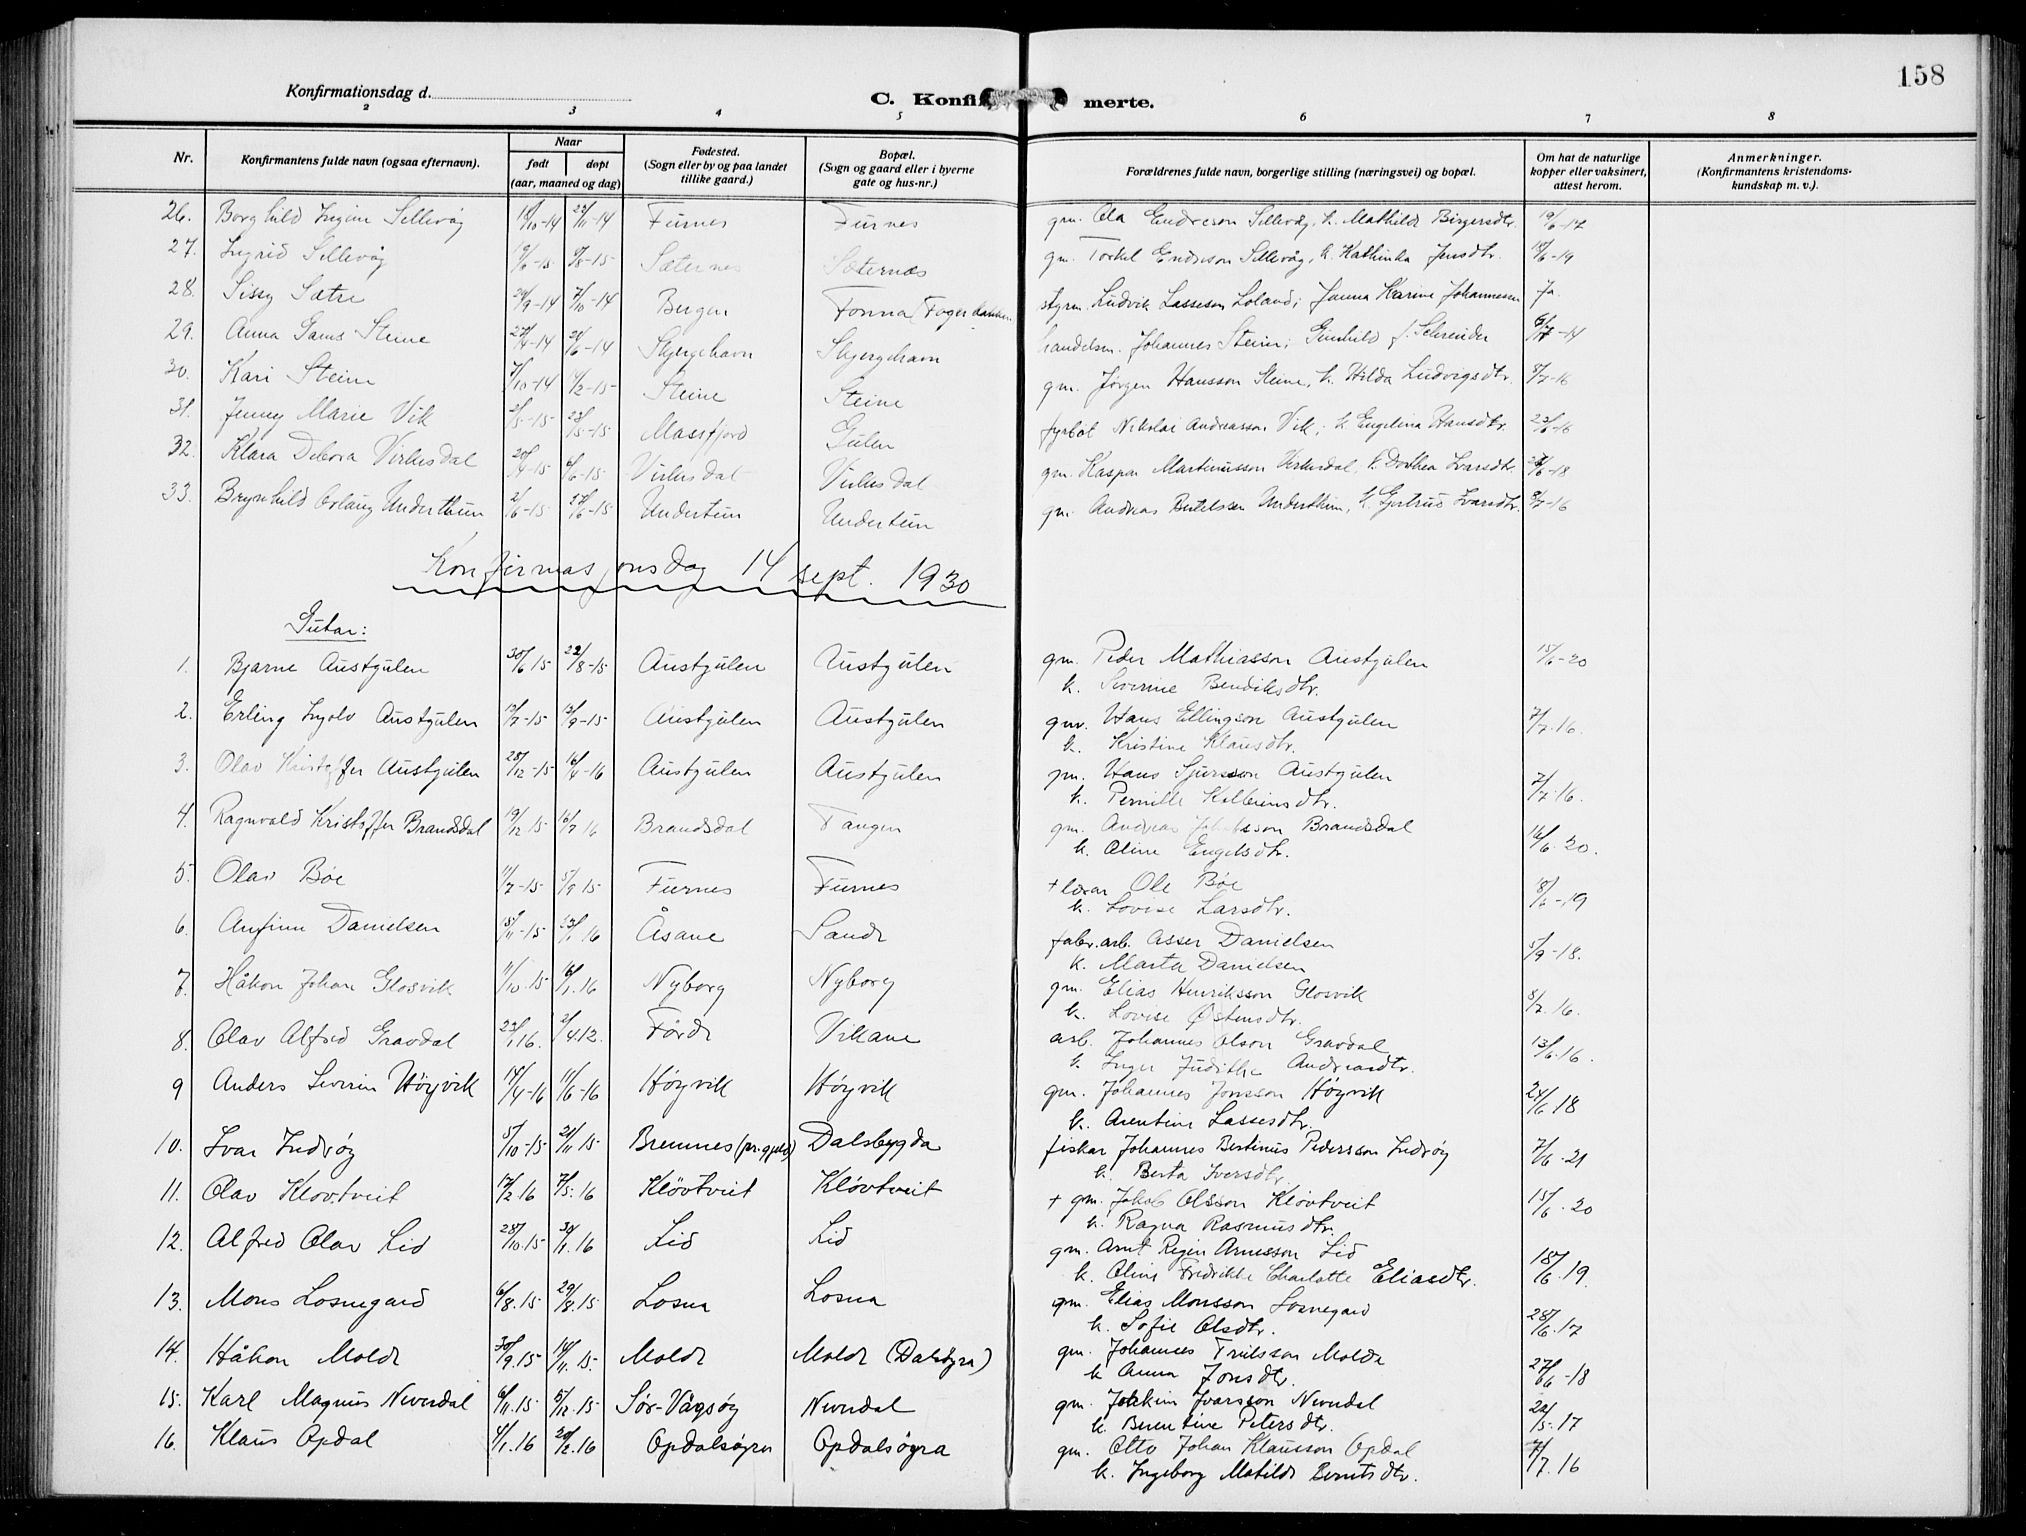 158
Konfirmationsdag d.
C. Konfirmerte.
2 3 4 5 6 7 8
Nr. Konfirmantens fulde navn (ogsaa efternavn). Naar født døpt (aar, maaned og dag) Fødested. (Sogn eller by og paa landet tillike gaard.) Bopæl. (Sogn og gaard eller i byerne gate og hus-nr.) Forældrenes fulde navn, borgerlige stilling (næringsvei) og bopæl. Om hat de naturlige kopper eller vaksinert, attest herom. Anmerkninger. (Konfirmantens kristendomskundskap m. v.).
26. Borghild Ingine Sellevåg Furnes Furnes gm. Ola Endreson Sellevåg, k. Mathilde Birgersdtr. 19/6-17
27. Ingrid Sellevåg Sæternes Sæternes gm. Torkel Endreson Sellevåg, k. Kathinka Jensdtr.
28. Sissy Sætre 7/10-14 Bergen Fonna styrm. Ludvik Lasseson Loland; Janna Karine Johannessen Ja.
29. Anna Gams Steine Skjergehavn Skjergehavn handelsm. Johannes Steine; Gunhild f. Schreuder
30. Kari Steine 7/10-14 Steine Steine gm. Jørgen Hansson Steine, k. Hilda Ludvigsdtr. 8/7-16
31. Jenny Marie Vik 2/5-15 23/5-15 Massfjord Gulen fyrbøt Nikolai Andreasson Vik; k. Engelina Hansdtr.
32. Klara Debora Virkesdal 20/4-15 6/6-15 Virkesdal Virkesdal gm. Kaspar Martinusson Virkesdal, k. Dorthea Ivarsdtr.
33. Brynhild Oslaug Underthun 2/6-15 27/6-15 Undertun Undertun gm. Andreas Bertelssen Underthun, k. Gjertrud Ivarsdtr.
Konfirmasjonsdag 14 sept. 1930
Gutar:
1. Bjarne Austgulen 30/6 15 22/8-15 Austgulen Austgulen gm. Peder Mathiasson Austgulen 15/6-20
k. Severine Bendiksdtr.
2. Erling Ingolv Austgulen 13/7-15 Austgulen Austgulen gm. Hans Ellingson Austgulen 7/7.16.
k. Kristine Klausdtr.
3. Olav Kristoffer Austgulen 28/12-15 16/4-16 Austgulen Austgulen gm. Hans Sjursson Austgulen 7/7.16.
k. Pernille Kolbeinsdtr.
4. Ragnvald Kristoffer Brandsdal 19/12 15 16/7 16 Brandsdal Tangen gm. Andreas Brandsdal 16/6.20.
k. Oline Engelsdtr.
5. Olav Bøe 11/7-15 5/9 15 Furnes Furnes + lærar Ole Bøe 18/6-19
k. Lovise Larsdtr.
6. Anfinn Danielsen 18/11-15 23/1 16 Åsane Sande fabr.arb. Asser Danielsen 5/9-18.
k. Marta Danielsen
7. Håkon Johan Glosvik 11/10.15 16/1.16 Nyborg Nyborg gm. Elias Henriksson Glosvik 8/7.16.
k. Lovise Østensdtr.
8. Olav Alfred Gravdal 23/1 16. 2/4.12. Førde Vikane arb. Johannes Olson Gravdal 13/6.16.
k. Inger Judithe Andreasdtr.
9 Anders Severin Høyvik 14/4-16 11/6-16 Høyvik Høyvik gm. Johannes Jonsson Høyvik 24/6 18
k. Arentine Lassesdtr.
10. Ivar Indrøy 5/10-15 21/11 15 Bremnes (pr.gjeld) Dalsbygda fiskar Johannes Bertinus Pedersson Indrøy 7/6.21
k. Berta Iversdtr.
11. Olav Kløvtveit 17/2.16 7/5.16 Kløvtveit Kløvtveit + gm. Jakob Olsson Kløvtveit 15/6.20
k. Ragna Rasmusdtr.
12. Alfred Olav Lid 28/10.15 30/1.16 Lid Lid gm. Arnt Regin Arnesson Lid 18/6.19.
k. Oline Fredrikke Charlotte Eliasdtr.
13. Mons Losnegard 6/8.15 29/8.15 Losna Losna gm. Elias Monsson Losnegard 28/6.17
k. Sofie Olsdtr.
14. Håkon Molde 30/9.15 14/11.15. Molde Molde (Dalsøyra) gm. Johannes Trulsson Molde 27/6-18
k Anna Jonsdtr.
15. Karl Magnus Nverdal 6/11.15 5/12.15 Sør-Vågsøy gm. Joakim Ivarsson 22/5-17
k. Berentine Petersdtr.
16. Klaus Opdal 4/1.16 20/2.16 Opdalsøyra Opdalsøyra gm. Otto Johan Klausson Opdal 7/7.16
k. Ingeborg Matilde Berntsdtr.